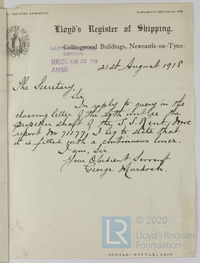 Lloyd's Register of Shipping.
Collingwood Buildings, Newcastle-on-Tyne.
LONDON
RECD AUG 1918
ANSD
21st August 1918
The Secretary
Sir
In reply to query in the
classing letter of the 20th inst re the
propeller shaft of the S.S. Kent, Nwc
report No. 71777, I beg to state that
it is fitted with a continuous liner.
I am, Sir,
Your Obedient Servant
George Murdoch.
© 2020
Lloyd's Register
Foundation